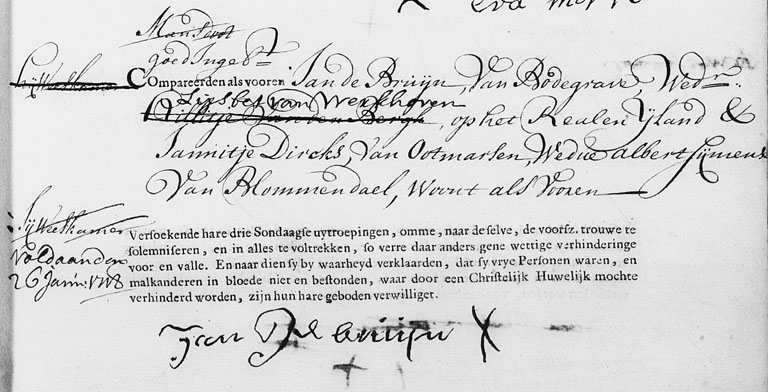 goed Ingebt
Compareerden als vooren Jan de Bruijn, Van Bodegrave, Wedr.
Lijsbet van Werkhoven
op het Realen Ijland &
Jannitje Dircks, Van Ootmarsen, Wedue albert Sijmensz
Van Blommendael, Woont als Vooren
Versoekende hare drie Sondaagse uytroepingen, omme, naar de selve, de voorsz. trouwe te
solemniseren, en in alles te voltrekken, so verre daar anders gene wettige verhinderinge
voor en valle. En naar dien sy by waarheyd verklaarden, dat sy vrye Personen waren, en
malkanderen in bloede niet en bestonden, waar door een Christelijk Huwelijk mochte
verhinderd worden, zijn hun hare geboden verwilliget.
Sij Weeskamer
Voldaan den
26 Jann:
Jan De bruijn X